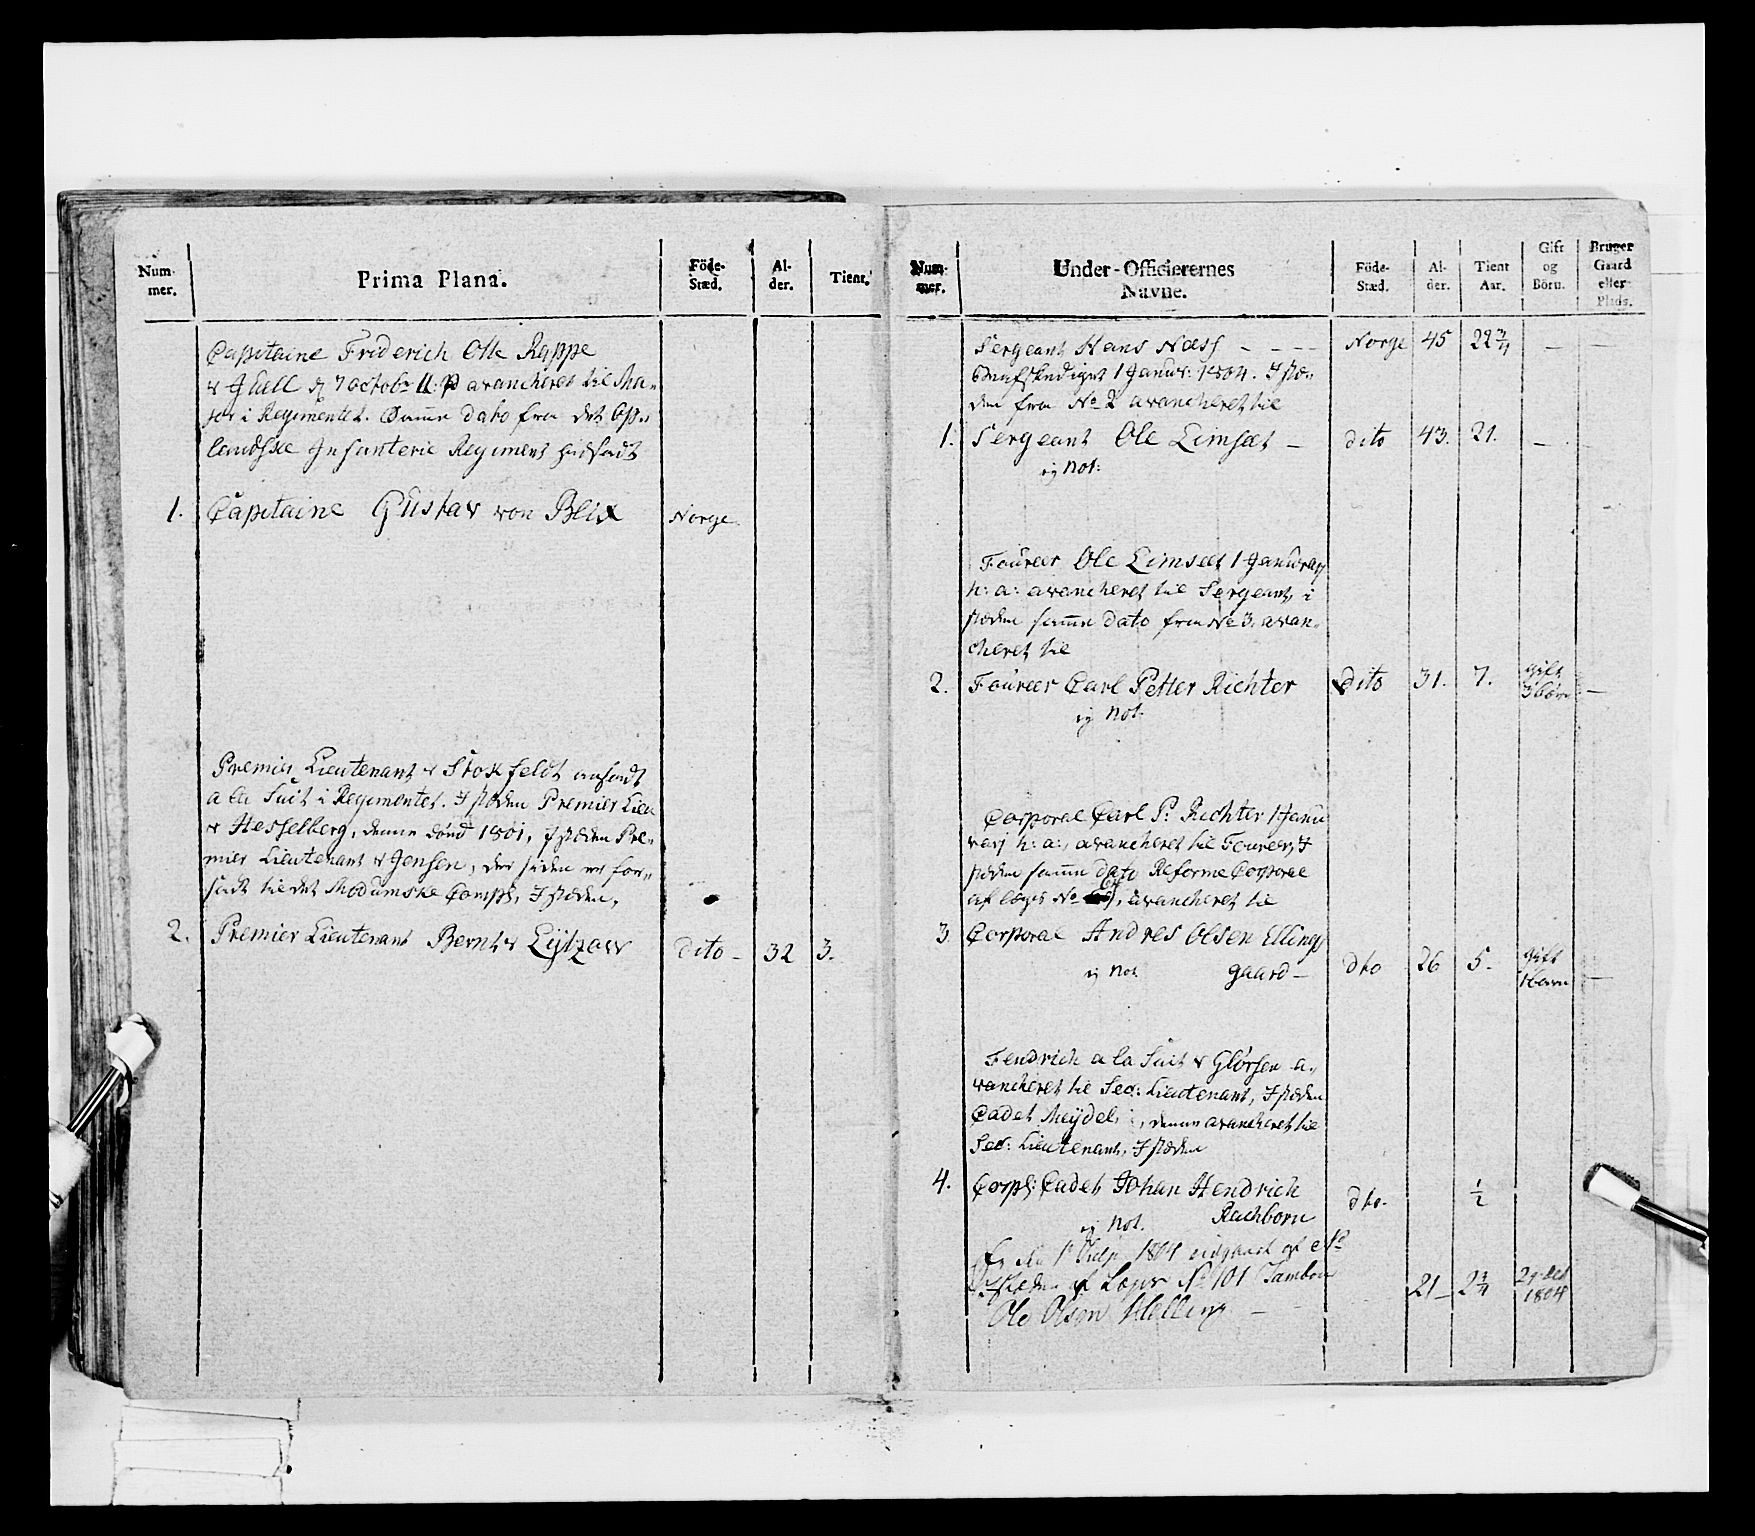 Num-
mer.
Prima Plana.
Föde-
Stæd.
Al-
der.
Tient.
Capitaine Friderich Otte Rappe
7 octobr avancheret til Ma-
jor i Regimentet. Samme dato fra det Op-
landske Infanterie Regiment hidsadt
1. Capitaine Gustav von Blix Norge
Premier Lieutenant v Stoxfeldt ansadt
a la Suit i Regimentet. I stæden Premier Lieu
v Hesselberg, denne død 1801, I stæden Pre-
mier Lieutenant v Jensen, der siden er for-
sadt til det Modumske Comp, I stæden,
2. Premier Lieutenant Bernt v Lytzow dito - 32 3.
Num-
mer.
Under-Officierernes
Navne.
Föde-
Stæd.
Al-
der.
Tient
Aar.
Gift
og
Börn.
Bruger
Gaard
eller
Plads.
Sergeant Hans Næss - - - - Norge 45 22 3/4 - -
1 Januar: 1804. I stæ-
den fra No 2 avancheret til
1. Sergeant Ole Limsæt - dito 43. 21. - -
ej Not:
Foureer Ole Limsæt 1 Januarij
h: a: avancheret til Sergeant, i
stæden samme dato fra No 3. avan-
cheret til
2. Foureer Carl Petter Richter dito 31. 7. gift 3 börn -
ej Not.
Corporal Carl P: Richter 1 Janu
varj h: a:, avancheret til Foureer, I
stæden samme dato Reforme Corporal
af lægs No 64, avancheret til
3. Corporal Andres Olsen Ellings
ej Not gaard - dto 26 5. gift 1 barn -
Fendrich a la Suit v Glörsen a-
vancheret til Sec: Lieutenant, I stæden
Cadet Meydel, denne avancheret til
Sec: Lieutenant, I stæden
4. Corpl: Cadet Johan Hendrich
Rachborn dto. 1/2
ej Not.
1804 udgaaet af
I stæden af Lægs No 101 Tambour
Ole Olsen Helling - 21 - 2 3/4 1804